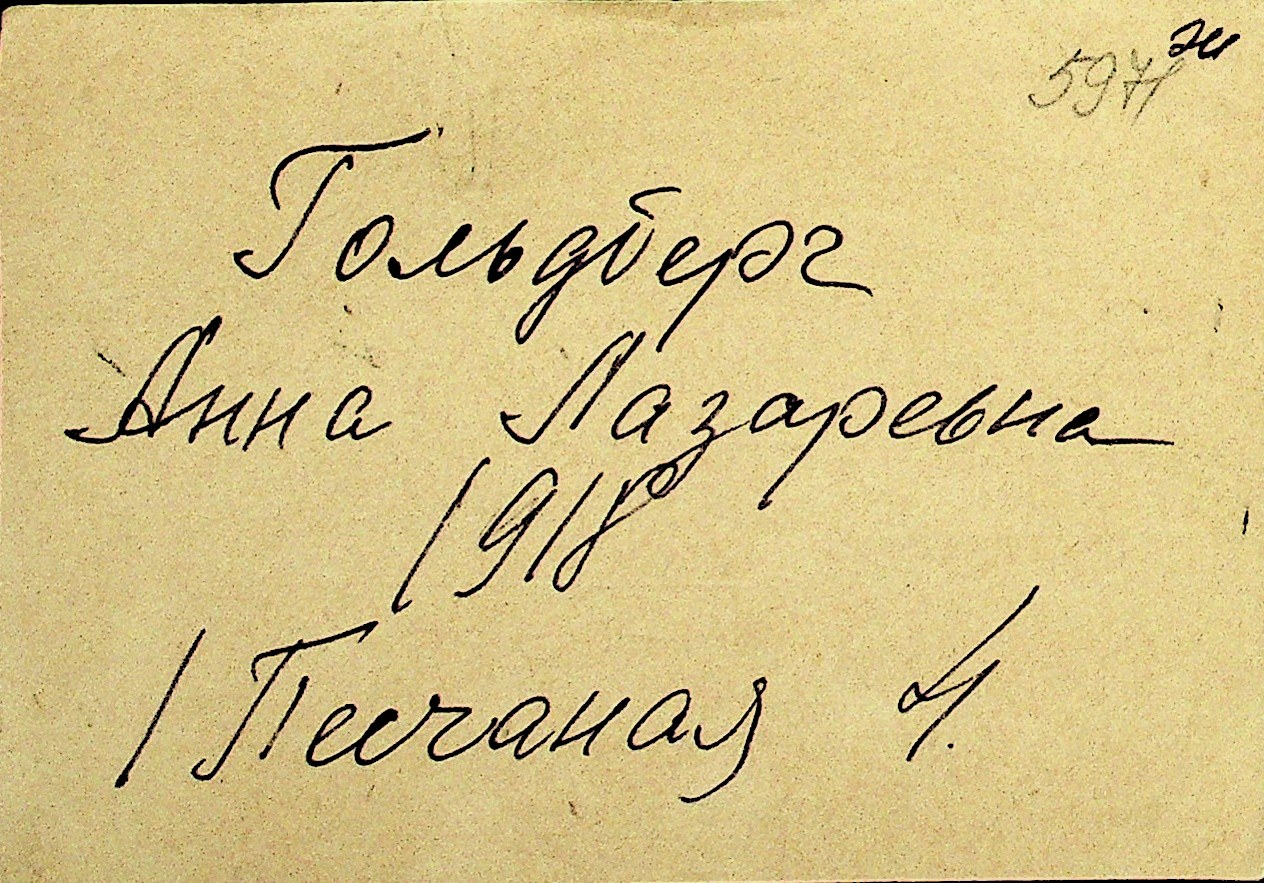 5971 эи
Гольдберг
Анна Лазаревна
1918
1 Песчаная 4.